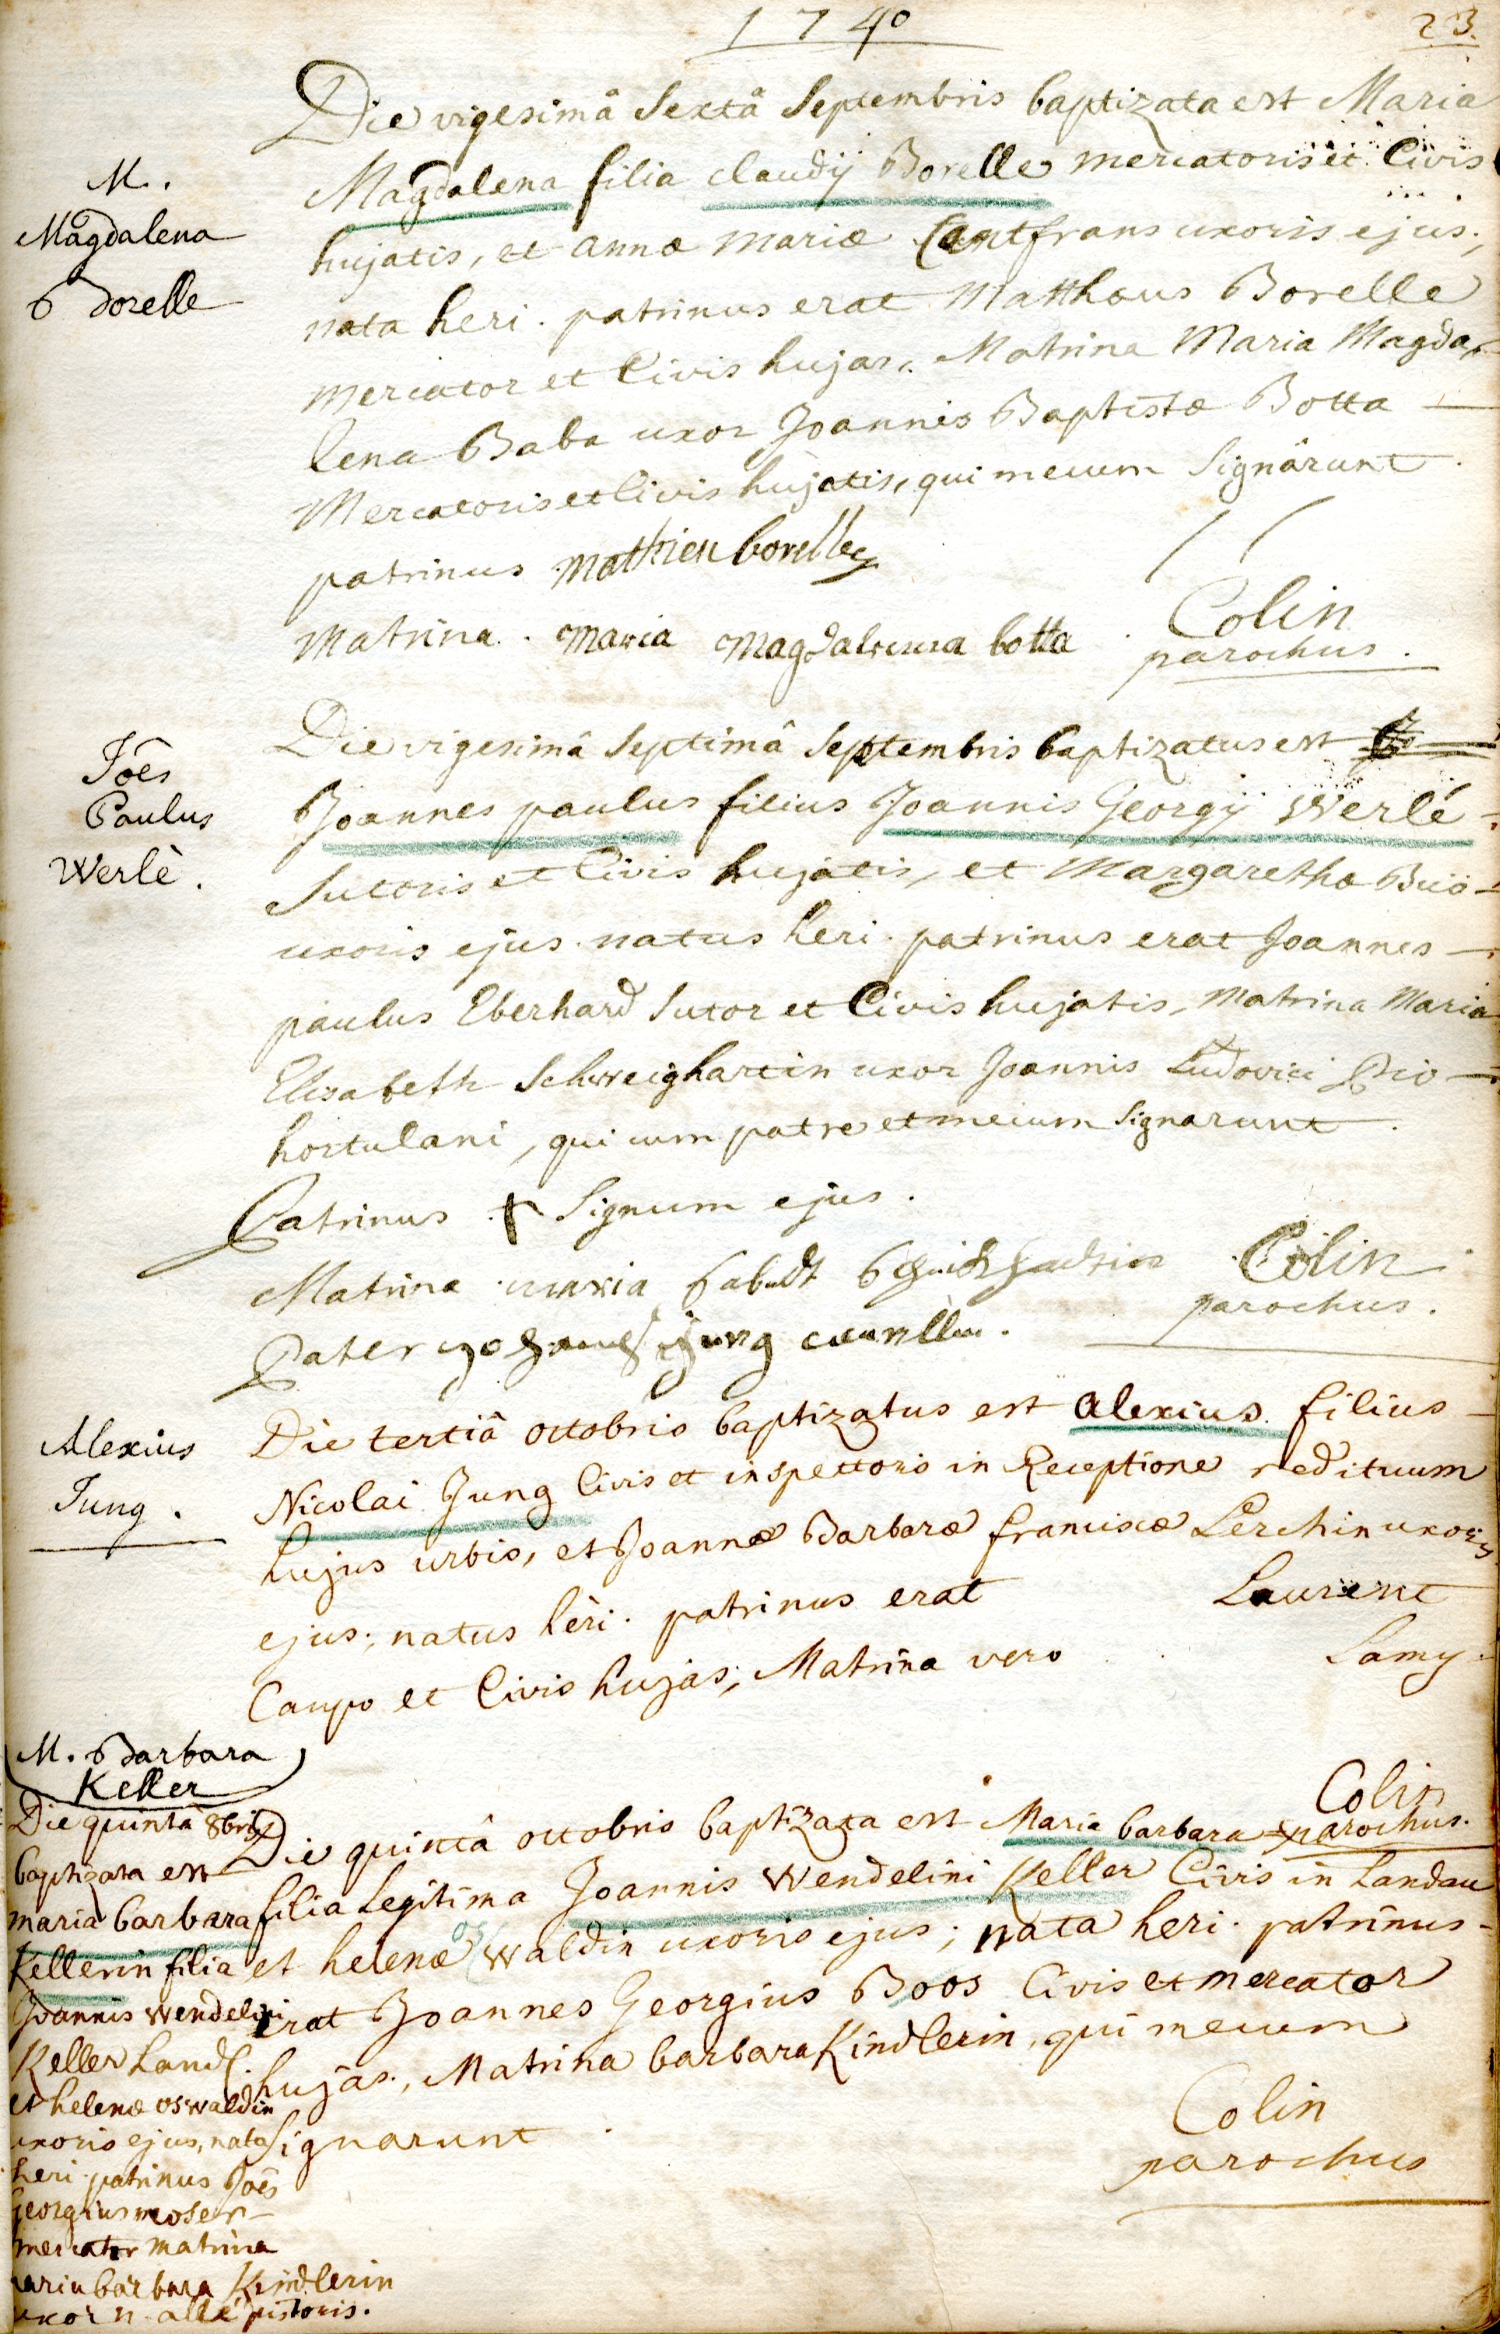 1740
23.
M.
Magdalena
Borelle
Die vigesimâ Sextâ Septembris baptizata est Maria
Magdalena filia claudij Borelle mercatoris et Civis
hujatis, et annæ mariæ Cantfrans uxoris ejus,
nata heri. patrinus erat Matthæus Borelle
mercator et Civis hujas, Matrina Maria Magda,
lena Baba uxor Joannis Baptistæ Botta
Mercatoris et Civis hujatis, qui mecum Signârunt.
patrinus mathieu borelle
Matrina. maria Magdalena botta
Colin
parochus.
Joês
Paulus
Werlè.
Die vigesimâ Septimâ Septembris baptizatus est
Joannes paulus filius Joannis Georgij Werlé
Sutoris et Civis hujatis, et Margarethæ
uxoris ejus natus heri. patrinus erat Joannes
paulus Eberhard Sutor et Civis hujatis, Matrina Maria
Elisabeth Schweighartin uxor Joannis Ludovici
hortulani, qui cum patre et mecum Signarunt.
Patrinus + Signum ejus.
Matrina maria
Pater
Colin
parochus.
Alexius
Jung.
Die tertiâ octobris baptizatus est alexius filius
Nicolai Jung Civis et inspectoris in Receptione redituum
hujus urbis, et Joannæ Barbaræ franciscæ Lerchin uxoris
ejus; natus heri. patrinus erat Laurent
Lamy.
Caupo et Civis hujas; Matrina vero
Colin
parochus.
M. Barbara
Keller
Die quintâ 8bris
baptizata est
maria barbara
Kellerin filia
Joannis Wendelini
Keller Land.
et helenæ oswaldin
uxoris ejus, nata
heri patrinus Joês
Georgius moser
mercator matrina
maria barbara Kindlerin
uxor n. allé pistoris.
Die quintâ octobris baptizata est Maria barbara
filia Legitima Joannis Wendelini Keller Civis in Landau
et helenæ os waldin uxoris ejus; nata heri. patrinus
erat Joannes Georgius Boos Civis et mercator
hujas., Matrina barbara Kindlerin, qui mecum
Signarunt.
Colin
parochus